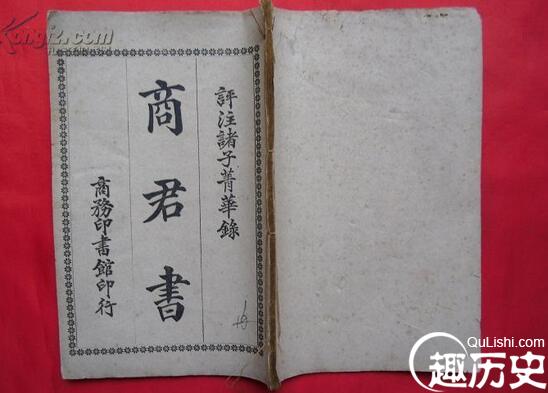 評注諸子菁華錄
商君書
商務印書館印行
Kongfz.com
QuLishi.com
趣历史